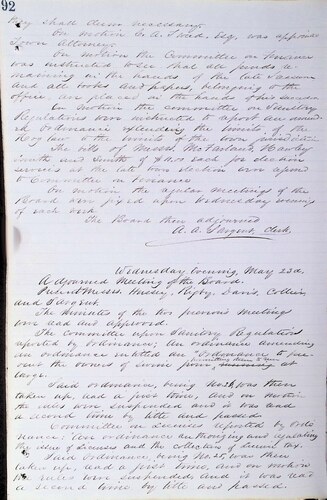 92
they shall deem necessary.
On motion E. A. Ford, Esq. was appointed
Town Attorney.
On motion the Committee on Finance
was instructed to see that all funds re-
maining in the hands of the late Treasurer
and all books and papers, belonging to the
office are placed in the hands of his successor
On motion the committee on Sanitary
Regulations were instructed to report an amend-
ed Ordinance extending the limits of the
to the limits of the town
The bills of Messrs. McFarland, Hawley
Smith and Smith of $ each for election
services at the late town election were referred
to Committee on Finance
On motion the regular meetings of the
Board are fixed upon Wednesday evening
of each week
The Board then adjourned
A. A. Sargent, Clerk.
Wednesday Evening, May 23d.
Adjourned Meeting of the Board.
Present Messrs. Rigby, Davis, Collins,
and Sargent.
The Minutes of the two previous meetings
were read and approved.
The Committee upon Sanitary Regulations
reported by Ordinance; An ordinance amending
an ordinance entitled an "Ordinance to pre-
vent the owners of swine from permitting them to run at
large.
Said ordinance, being No 24, was then
taken up, read a first time, and on motion
the rules were suspended and it was read
a second time by title and passed.
Committee on Licenses reported by Ordi-
nance; "An ordinance authorizing and regulating
the of Licenses and the collection of License tax.
Said Ordinance, being No 25, was then
taken up, and read a first time, and on motion
the rules were suspended, and it was read
a second time by title and passed.